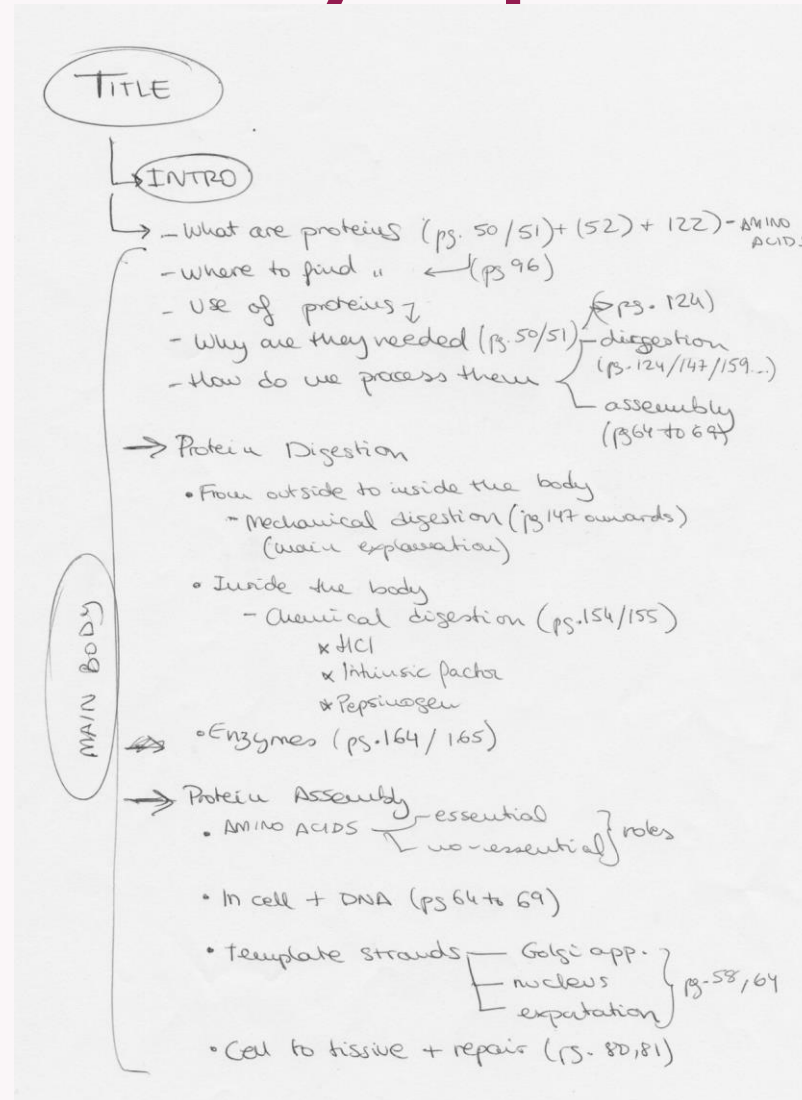 TITLE
INTRO
- What are proteins (pg. 50/51) + (52) + 122) - AMINO ACIDS
- Where to find " (pg 96)
- Use of proteins
(pg. 124)
- Why are they needed (pg. 50/51)
- How do we process them
- digestion
(pg. 124/147/159...)
assembly
(pg 64 to 69)
→ Protein Digestion
• From outside to inside the body
- Mechanical digestion (pg 147 onwards)
(main explanation)
• Inside the body
- Chemical digestion (pg. 154/155)
x HCl
x Intrinsic factor
x Pepsinogen
• Enzymes (pg. 164/165)
MAIN BODY
→ Protein Assembly
• AMINO ACIDS - essential
no-essential } roles
• In cell + DNA (pg 64 to 69)
• Template strands - Golgi app.
- nucleus
pg. 58, 64
• Cell to tissive + repair (pg. 80, 81)